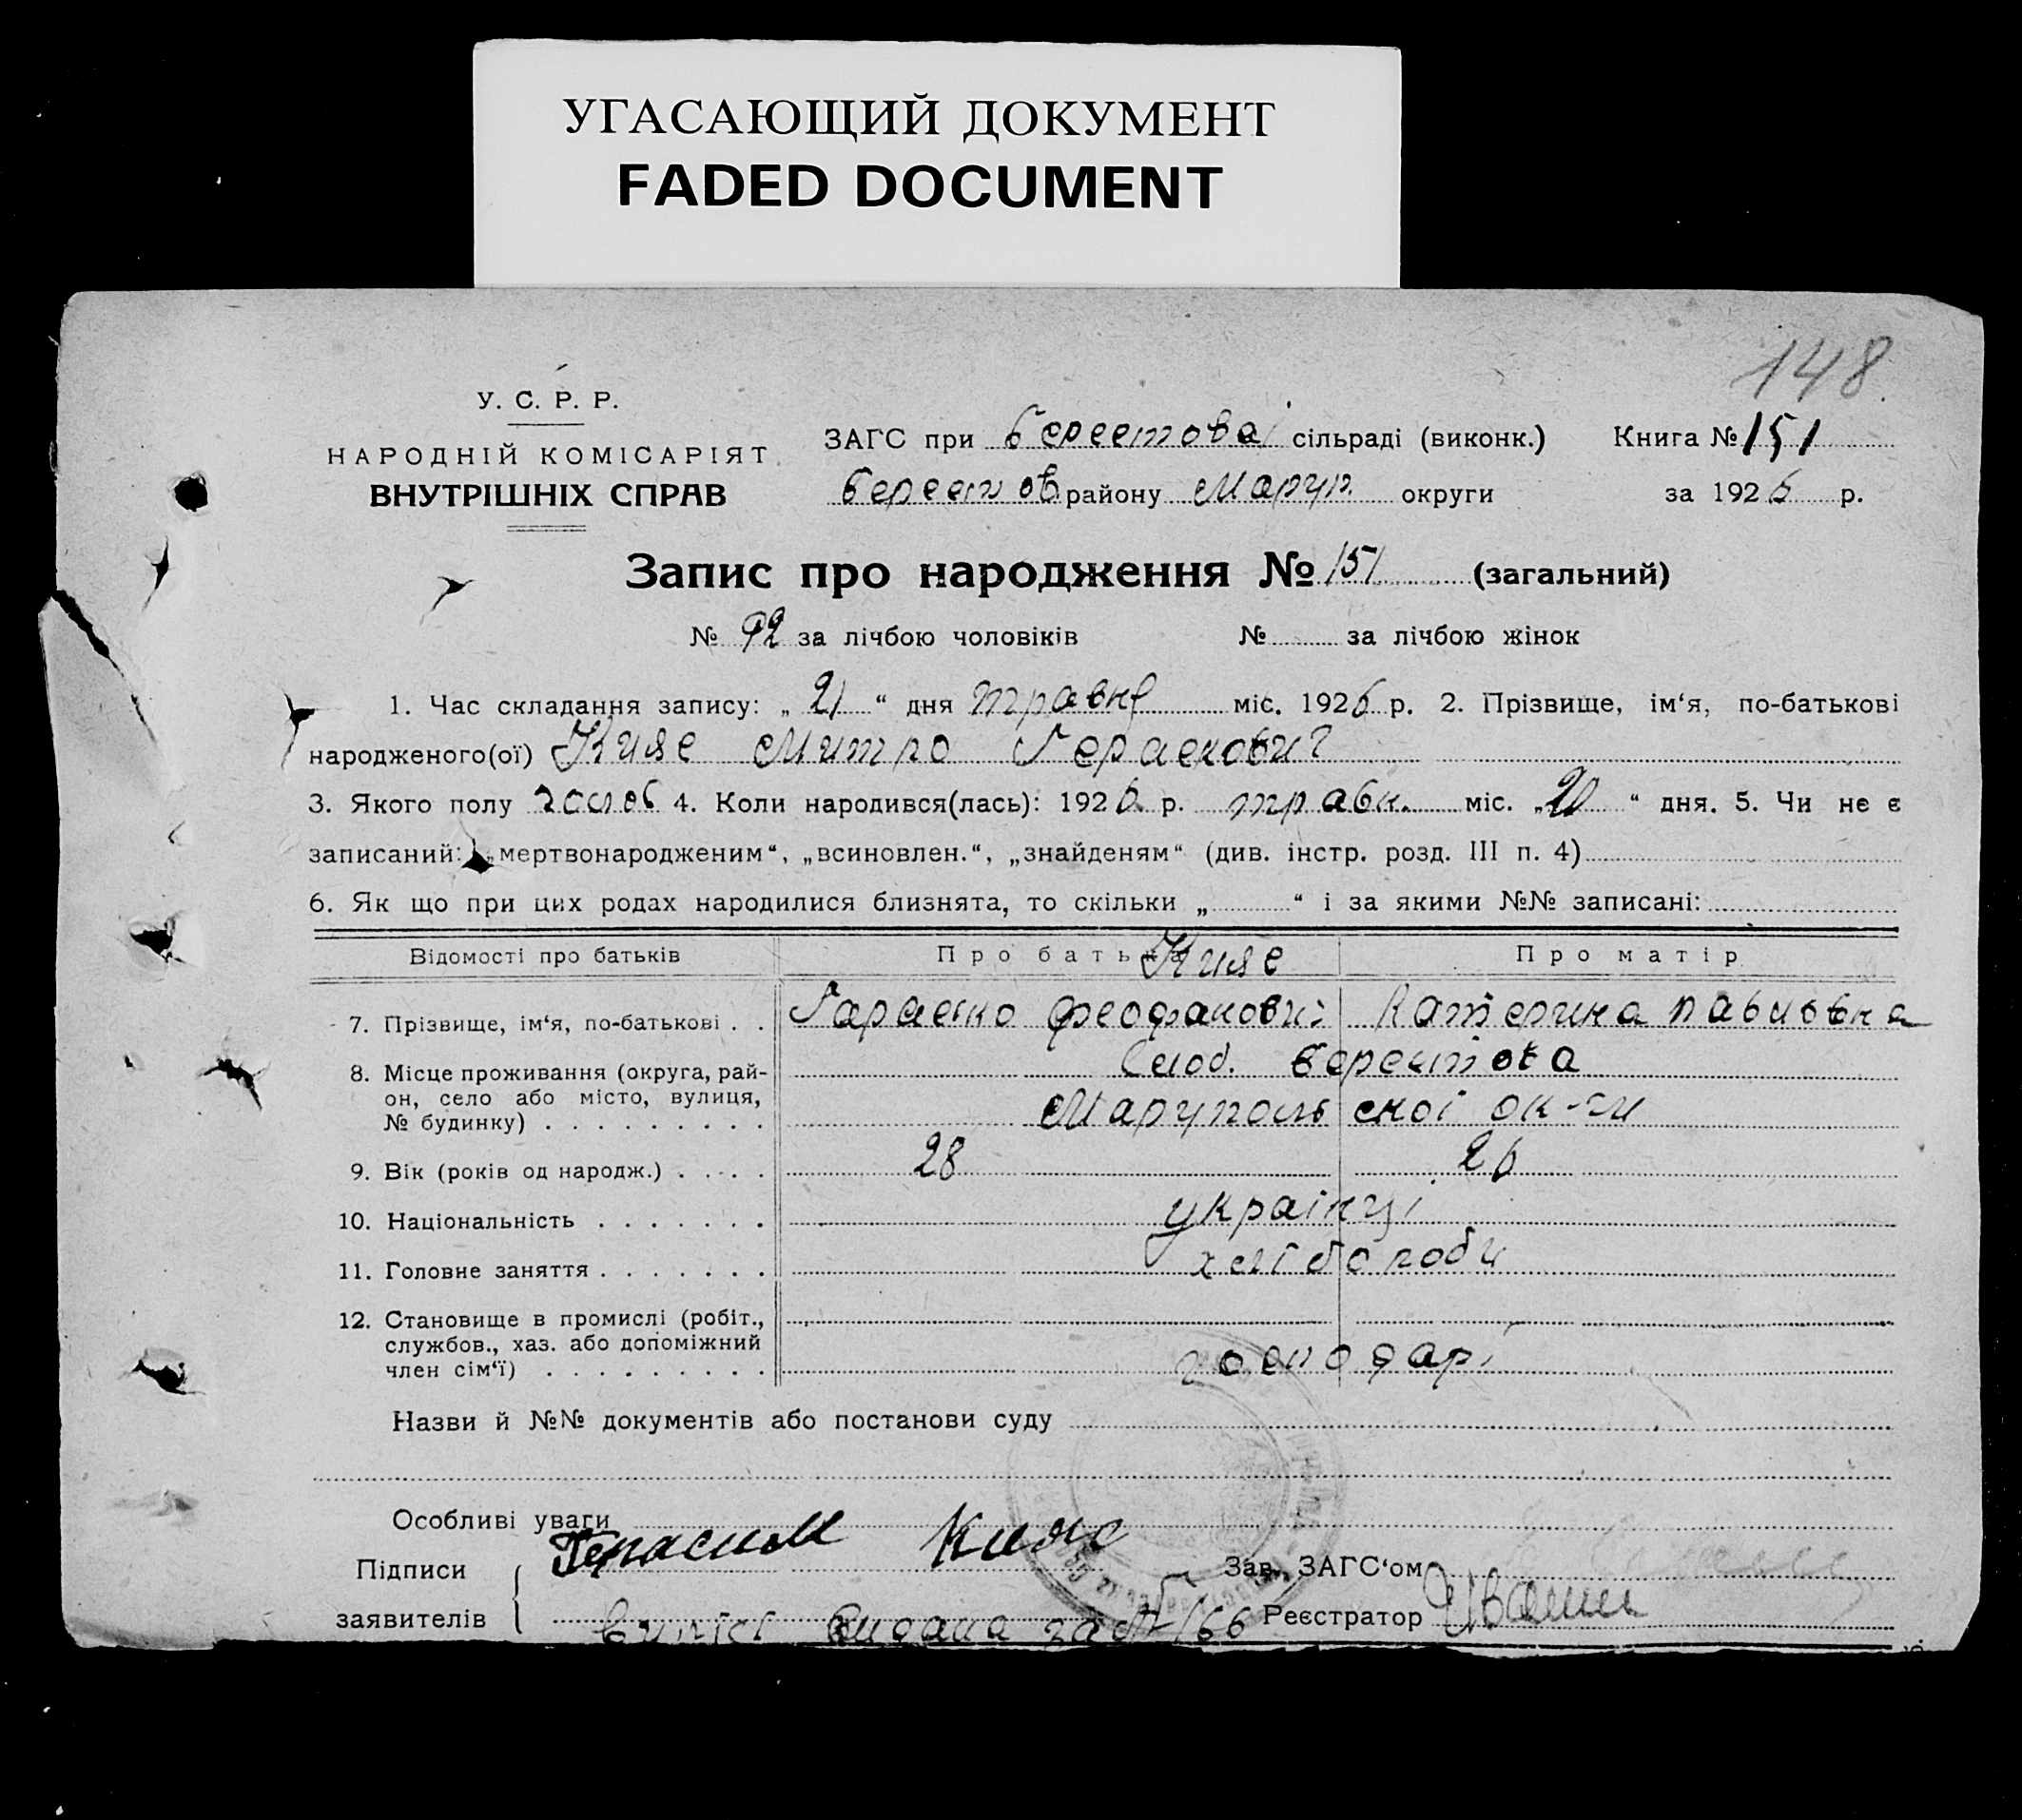 УГАСАЮЩИЙ ДОКУМЕНТ
FADED DOCUMENT
148
У. С. Р. Р.
НАРОДНІЙ КОМІСАРІЯТ
ВНУТРІШНІХ СПРАВ
ЗАГС при Берестоваі сільраді (виконк.) Книга № 151
Берестов району Маруп. округи за 1926 р.
Запис про народження № 151 (загальний)
№ 92 за лічбою чоловіків № за лічбою жінок
1. Час складання запису: „ 21 “ дня травня міс. 1926 р. 2. Прізвище, ім‘я, по-батькові
народженого(ої) Кияс Митро Гераскович
3. Якого полу чолов 4. Коли народився(лась): 1926 р. травн. міс. „ 20 “ дня. 5. Чи не є
записаний: „мертвонародженим“, „всиновлен.“, „знайденям“ (див. інстр. розд. III п. 4)
6. Як що при цих родах народилися близнята, то скільки „ “ і за якими №№ записані:
Відомості про батьків Про батька Про матір
Кияс
7. Прізвище, ім‘я, по-батькові . . Гараско Феофанович Катерина Павливна
8. Місце проживання (округа, рай- Слоб. Берестова
он, село або місто, вулиця, Марупольскоі ок-ги
№ будинку) . . . . . . . . .
9. Вік (років од народж.) . . . . 28 26
10. Національність . . . . . . . украінці
11. Головне заняття . . . . . . . хлібороби
12. Становище в промислі (робіт.,
службов., хаз. або допоміжний
член сім‘ї) . . . . . . . . . господарі
Назви й №№ документів або постанови суду
Особливі уваги
Підписи Герасим Кияс Зав. ЗАГС‘ом
заявителів видана за № 166 Реєстратор